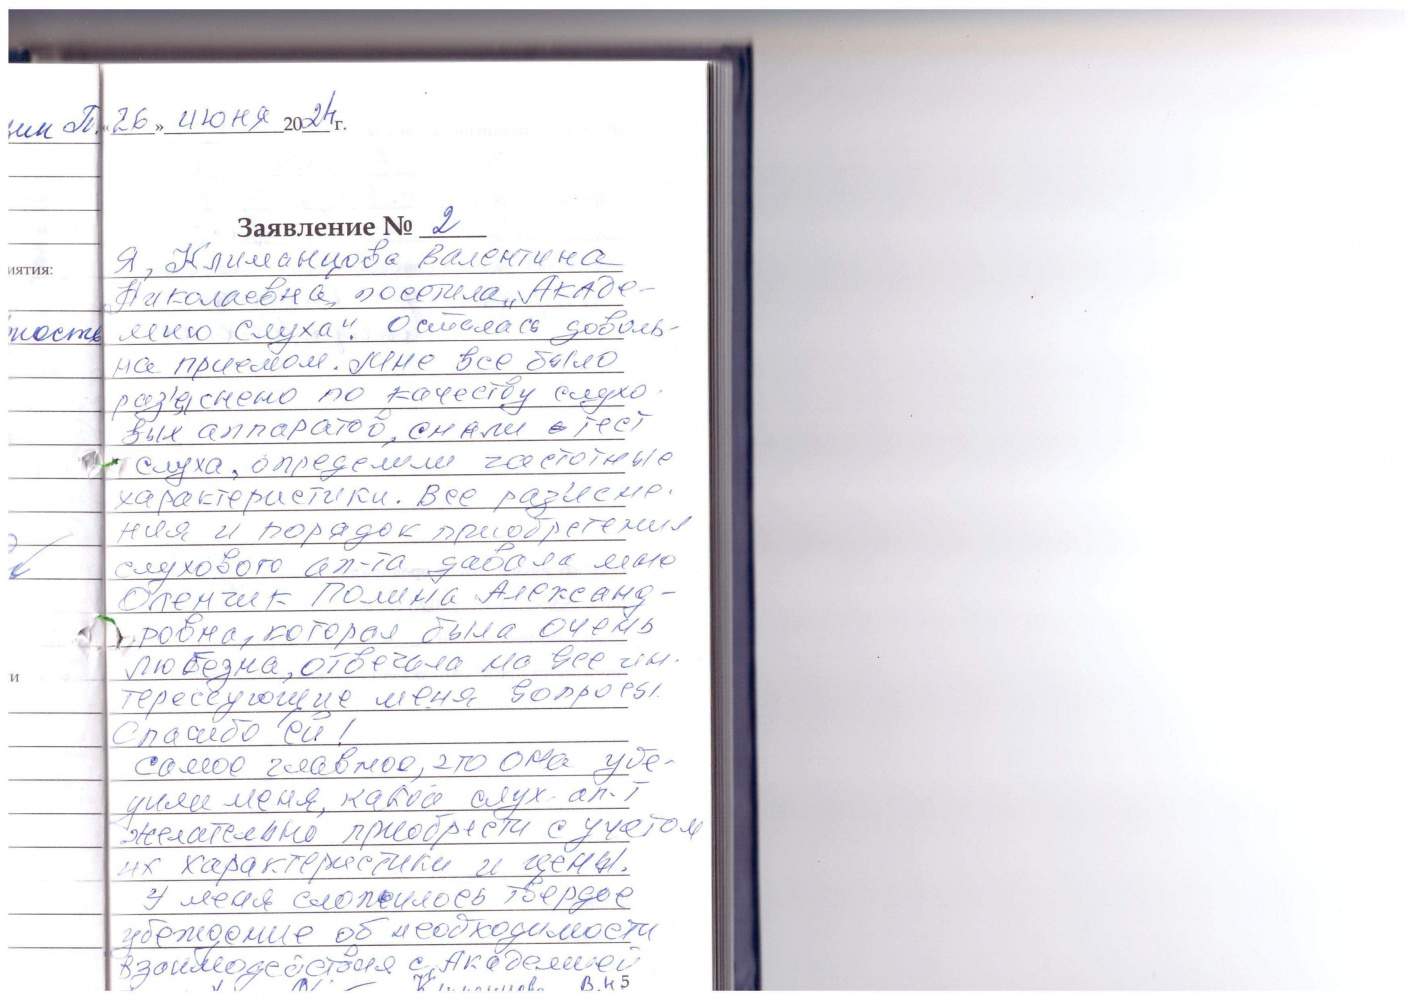 П. «26» июня 2024 г.
Заявление № 2
иятия:
Я, Климанцова Валентина
Николаевна, посетила „Акаде-
ность мию слуха". Осталась доволь-
на приемом. Мне все было
раз'яснено по качеству слухо-
вых аппаратов, сняли тест
слуха, определили частотные
характеристики. Все раз'ясне-
ния и порядок приобретения
слухового ап-та давала мне
Оленчик Полина Александ-
ровна, которая была очень
любезна, отвечала на все ин-
и
тересующие меня вопросы.
Спасибо ей!
Самое главное, что она убе-
дили меня, какой слух. ап-т
желательно приобрести с учетом
их характеристики и цены.
У меня сложилось твердое
убеждение об необходимости
взаимодействия с „Академией
Климанцова В.Н 5